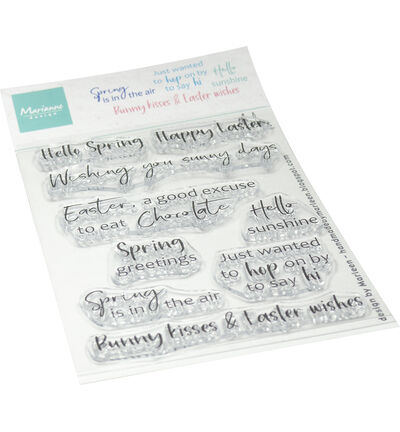 Marianne
DESIGN
Spring
is in the air
Just wanted
to hop on by
to say hi
Hello
sunshine
Bunny kisses & Easter wishes
Hello Spring
Happy Easter
Wishing you sunny days
Easter, a good excuse
to eat Chocolate
Hello
sunshine
Spring
greetings
Just wanted
to hop on by
to say hi
Spring
is in the air
Bunny kisses & Easter wishes
design by Marleen - handmadebymarleen.blogspot.com